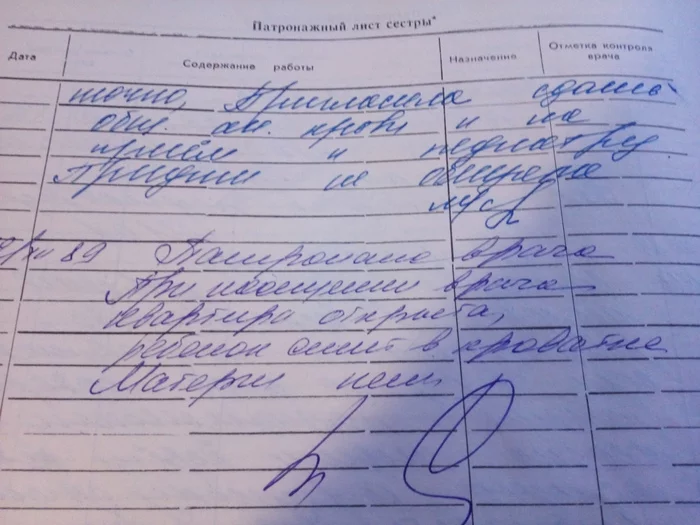 Патронажный лист сестры*
Дата Содержание работы Назначение Отметка контроля врача
точно, Пригласила сдать
общ. ан. крови и на
приём к педиатру
/XII 89 Патронаж врача
При посещении врача
квартира открыта,
ребенок спит в кроватке
Матери нет